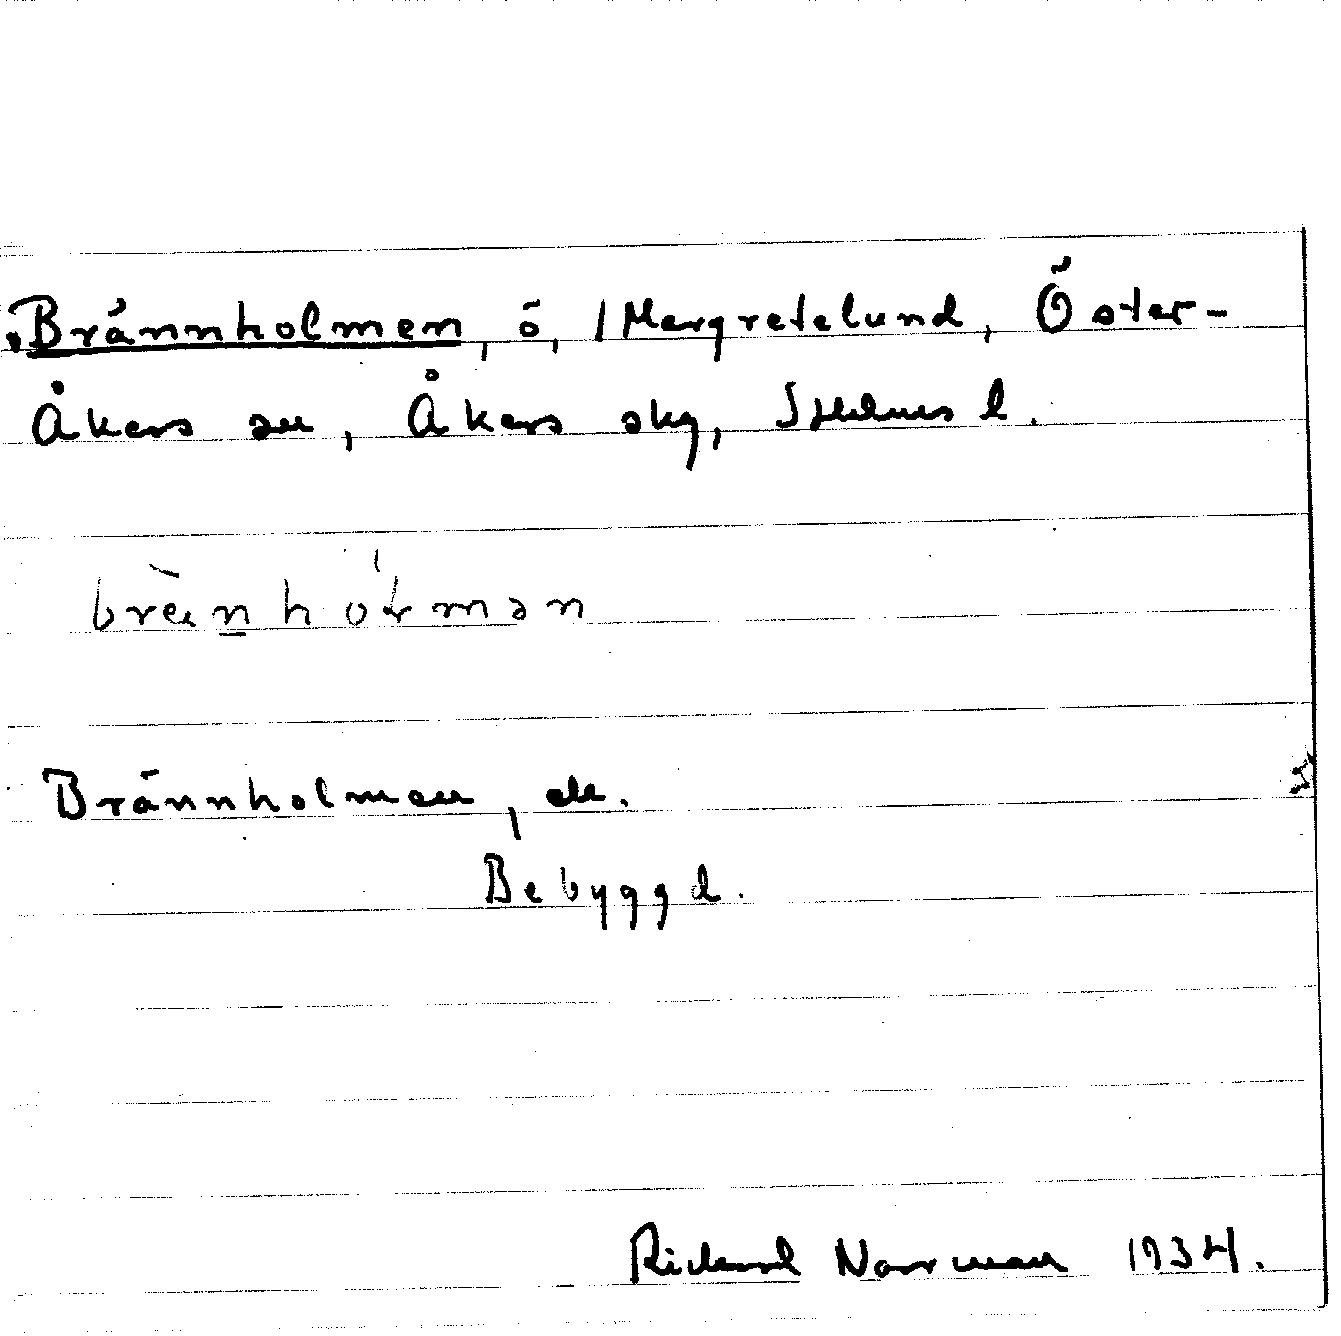 Brännholmen, ö, / Margretelund, Öster-
Åkers sn, Åkers skg, Sthlms l.
Brännholmen, de.
Bebyggd.
Rickard Norrman 1934.